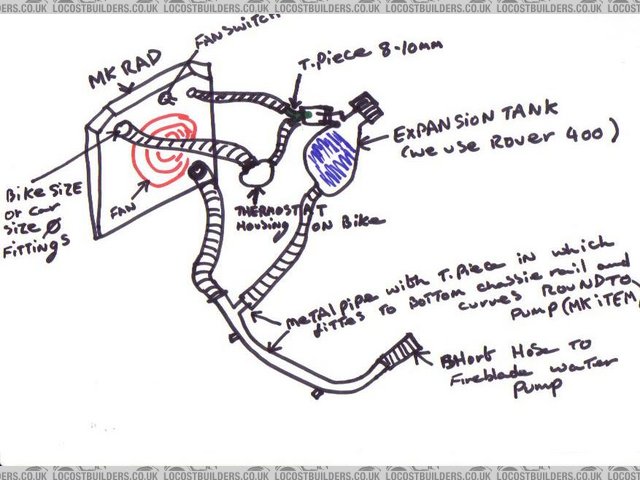 LOCOSTBUILDERS.CO.UK LOCOSTBUILDERS.CO.UK LOCOSTBUILDERS.CO.UK LOCOSTBUILDERS.CO.UK
FAN SWITCH
MK RAD
T.Piece 8-10mm
EXPANSION TANK
(we use Rover 400)
Bike SIZE
or car
size Ø
FITTINGS
FAN
THERMOSTAT
Housing ON Bike
Metal pipe with T.Piece in which
fittes to Bottom chassie rail and
curves ROUND TO
pump (MK iTEM)
SHort Hose TO
Fireblade water
pump
LOCOSTBUILDERS.CO.UK LOCOSTBUILDERS.CO.UK LOCOSTBUILDERS.CO.UK LOCOSTBUILDERS.CO.UK